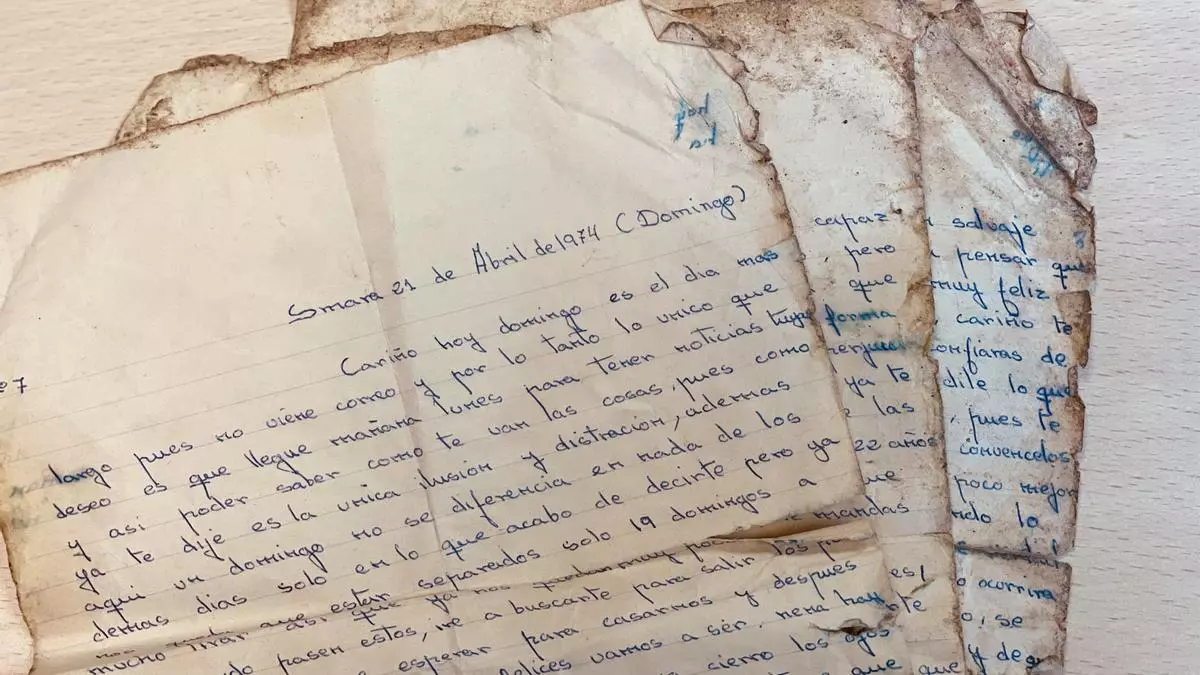 Smara 21 de Abril de 1974 (Domingo)
Cariño hoy domingo es el dia mas
largo pues no viene correo y por lo tanto lo unico que
deseo es que llegue mañana lunes para tener noticias tuyas
y asi poder saber como te van las cosas, pues como
ya te dije es la unica ilusión y distracion, ademas
aqui un domingo no se diferencia en nada de los
demas dias solo en lo que acabo de decirte pero ya
estar separados solo 19 domingos a
mucho
pasen estos, ire a buscarte para salir los
esperar para casarnos y despues
felices vamos a sér, nena
cierro los ojos
que
capaz
, pero
que
forma
ya te
e las
22 años
que
mandas
es
salvaje
pensar que
muy feliz
cariño te
confiaras de
dile lo que
, pues te
convencelos
poco mejor
lo
ocurrira
o, se
y de